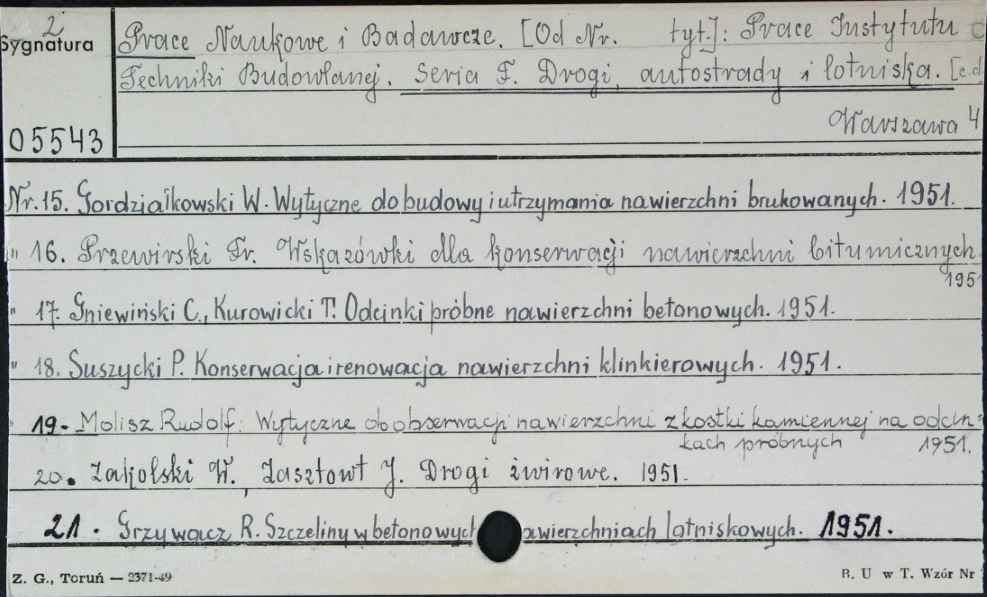 2
Sygnatura
05543
Prace Naukowe i Badawcze. [Od Nr. tyt.]: Prace Instytutu
Techniki Budowlanej. Seria F. Drogi, autostrady i lotniska. [c.d
Warszawa 4
Nr. 15. Gordziałkowski W. Wytyczne do budowy i utrzymania nawierzchni brukowanych. 1951.
" 16. Przewirski Fr. Wskazówki dla konserwacji nawierzchni bitumicznych
195
" 17. Gniewiński C., Kurowicki T. Odcinki próbne nawierzchni betonowych. 1951.
" 18. Suszycki P. Konserwacja i renowacja nawierzchni klinkierowych. 1951.
19. Molisz Rudolf: Wytyczne do obserwacji nawierzchni z kostki kamiennej na odcin-
kach próbnych 1951.
20. Zakolski W., Zasztowt J. Drogi żwirowe. 1951.
21. Grzywacz R. Szczeliny w betonowych awierzchniach lotniskowych. 1951.
Z. G., Toruń — 2371-49
B. U w T. Wzór Nr